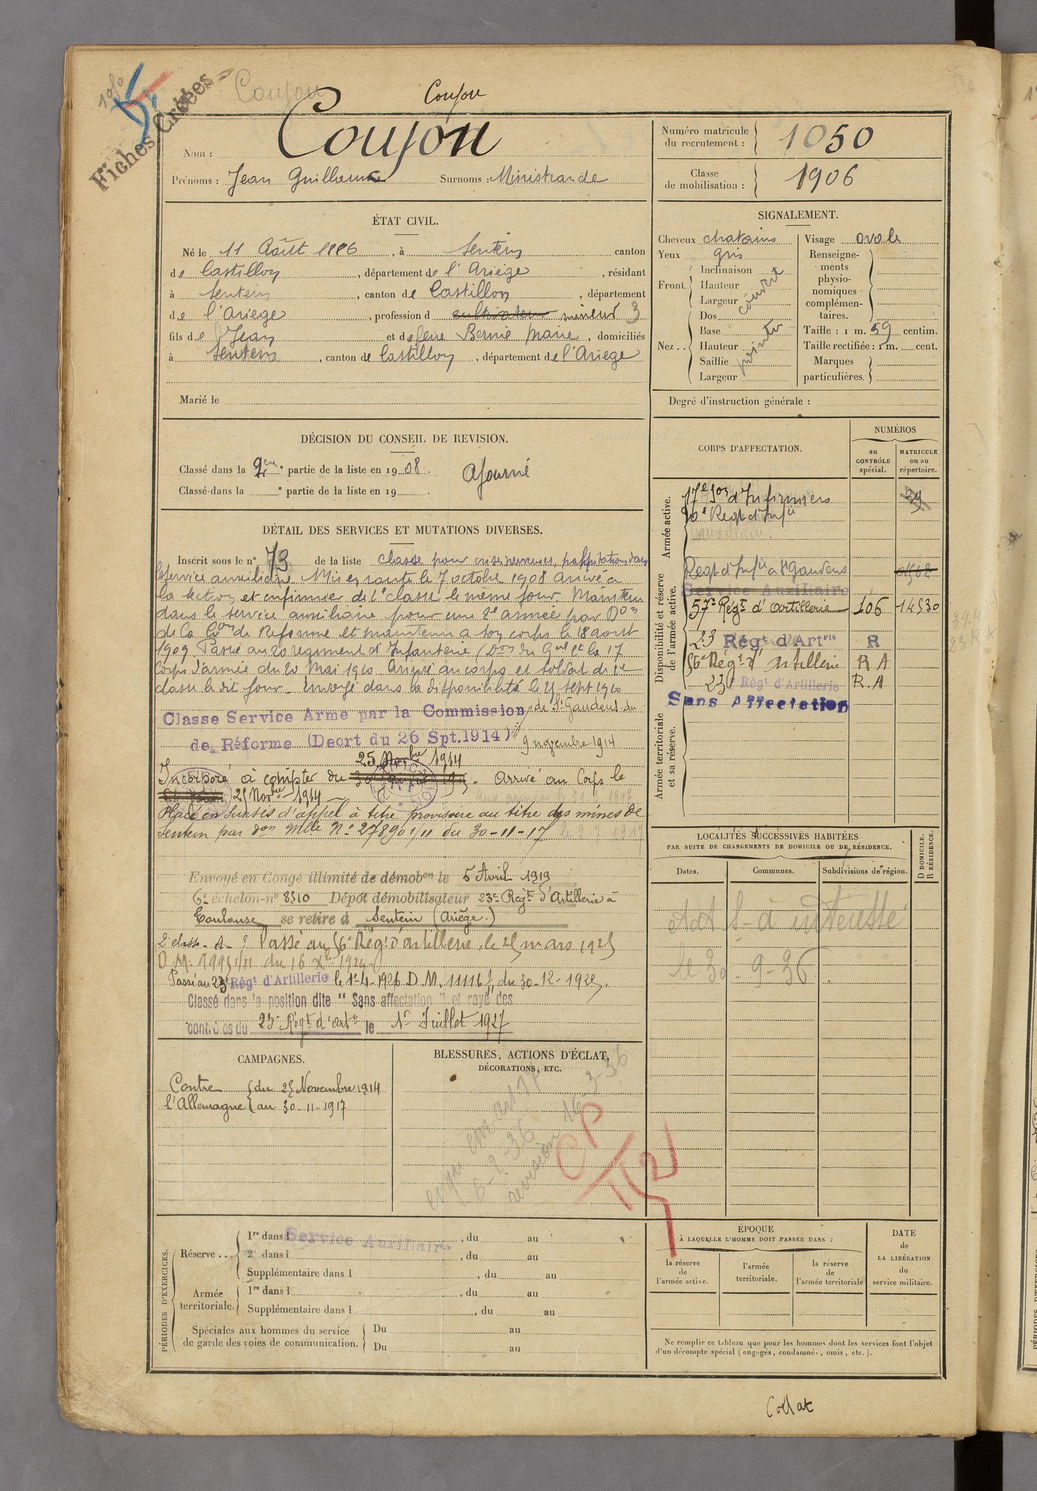 Fiches Créées
Coujou
Coujou
Nom : Coujou
Prénoms : Jean Guillaume Surnoms : Ministrande
Numéro matricule du recrutement : 1050
Classe de mobilisation : 1906
ÉTAT CIVIL.
Né le 11 Août 1886, à Sentein canton
de Castillon, département de l'Ariège, résidant
à Sentein, canton de Castillon, département
de l'Ariège, profession d cultivateur mineur 3
fils de Jean et de feue Bernié Marie, domiciliés
à Sentein, canton de Castillon, département de l'Ariège
Marié le
SIGNALEMENT.
Cheveux chatains
Yeux gris
Front. Inclinaison
Hauteur
Largeur
couvert
Nez .. Dos
Base
Hauteur
Saillie
Largeur
Visage ovale
Renseignements physionomiques complémentaires.
Taille : 1 m. 59 centim.
Taille rectifiée : 1 m. cent.
Marques particulières.
Degré d'instruction générale :
DÉCISION DU CONSEIL DE REVISION.
Classé dans la 2eme partie de la liste en 1908. Ajourné
Classé dans la e partie de la liste en 19
DÉTAIL DES SERVICES ET MUTATIONS DIVERSES.
Inscrit sous le n° 73 de la liste classé pour crises nerveuses, palpitations dans
le service auxiliaire Mis en route le 7 octobre 1908 arrivé à
la section et infirmier de 2e classe le même jour Maintenu
dans le service auxiliaire pour une 2e année par Don
de la Con de Réforme et maintenu à son corps le 18 août
1909 Passé au 20 régiment d'Infanterie (Don du Gnal Ct le 17
Corps d'armée du 20 Mai 1910 Arrivé au corps et soldat de 2e
classe le dit jour. Envoyé dans la disponibilité le 25 sept 1910
Classe Service Armé par la Commission de St Gaudens du
de Réforme (Decrt du 26 Spt. 1914) 9 novembre 1914
25 Novbre 1914
Incorporé à compter du Arrivé au Corps le
25 Novbre 1914
Placé en Sursis d'appel à titre provisoire au titre des mines de
Sentein par don Mlle N° 278901/11 du 30-11-17
Envoyé en Congé illimité de démobon le 5 Avril 1919
6e échelon n° 8510 Dépôt démobilisateur 23e Regt d'Artillerie à
Toulouse se retire à Sentein (Ariège)
Passé au 56e Régt d'artillerie, le 25 mars 1925
Passé au 23e Régt d'Artillerie le 1-4-1926 D.M. du 30-12-1925.
Classé dans la position dite "Sans affectation" et rayé des
contrôles du 23e Régt d'artie le 1er Juillet 1927
CORPS D'AFFECTATION.
NUMÉROS
au CONTRÔLE spécial.
MATRICULE ou au répertoire.
Armée active.
17e Son d'Infirmiers
20e Regt d'Infie
Disponibilité et réserve de l'armée active.
Regt d'Infie de St Gaudens
Service Auxiliaire
57e Régt d'artillerie 106 14530
23 Régt d'Artrie R
56e Régt d'Artillerie R A
23e Régt d'Artillerie R.A
Sans Affectation
Armée territoriale et sa réserve.
LOCALITÉS SUCCESSIVES HABITÉES
PAR SUITE DE CHANGEMENTS DE DOMICILE OU DE RÉSIDENCE.
Dates. Communes. Subdivisions de région. D DOMICILE. R RÉSIDENCE.
à intéressé
le 30-9-36.
CAMPAGNES.
Contre l'Allemagne
du 25 Novembre 1914
au 30-11-1917
BLESSURES, ACTIONS D'ÉCLAT,
DÉCORATIONS, ETC.
CP
PÉRIODES D'EXERCICES.
Réserve ... 1re dans l Service Auxiliaire, du au
2e dans l, du au
Supplémentaire dans l, du au
Armée territoriale. 1re dans l, du au
Supplémentaire dans l, du au
Spéciales aux hommes du service de garde des voies de communication. Du au
Du au
ÉPOQUE
À LAQUELLE L'HOMME DOIT PASSER DANS :
la réserve de l'armée active.
l'armée territoriale.
la réserve de l'armée territoriale
DATE de LA LIBÉRATION du service militaire.
Ne remplir ce tableau que pour les hommes dont les services font l'objet
d'un décompte spécial (engagés, condamnés, omis, etc.).
Collat